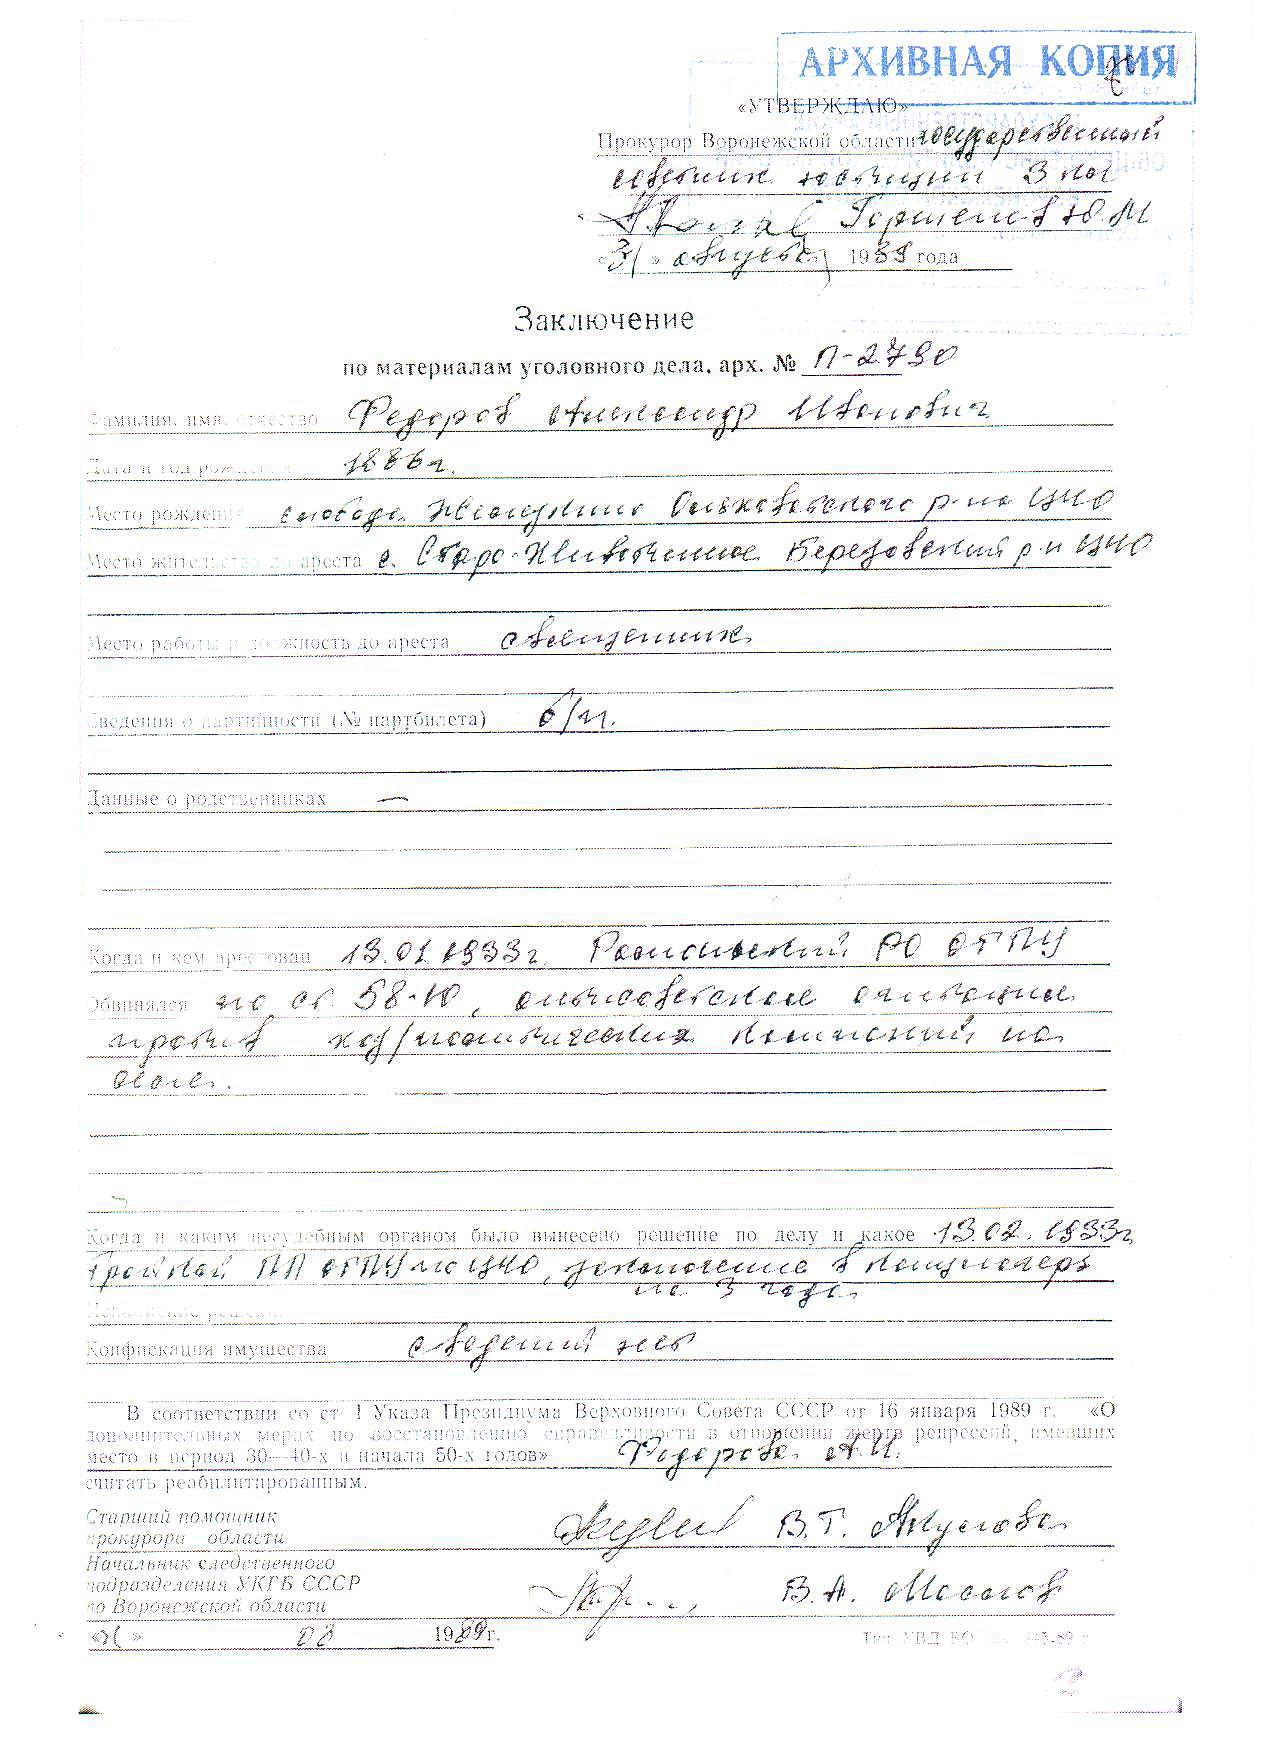 АРХИВНАЯ КОПИЯ
«УТВЕРЖДАЮ»
Прокурор Воронежской области государственный
советник юстиции 3 кл
Горшенев Ю.М
«31» августа 1989 года
Заключение
по материалам уголовного дела, арх. № П-2790
Фамилия, имя, отчество Федоров Александр Иванович
Дата и год рождения 1886 г.
Место рождения слобода Ольховатского р-на ЦЧО
Место жительства до ареста с. Старо-Животинное Березовский р-н ЦЧО
Место работы и должность до ареста священник
Сведения о партийности (№ партбилета) б/п.
Данные о родственниках —
Когда и кем арестован 13.01.1933г. Рамонский РО ОГПУ
Обвинялся по ст. 58-10, антисоветская агитация
против хоз/политических кампаний на
селе.
Когда и каким несудебным органом было вынесено решение по делу и какое 13.02.1933г
Тройкой ПП ОГПУ по ЦЧО, заключение в концлагерь
на 3 года
Исполнение решения
Конфискация имущества сведений нет
В соответствии со ст 1 Указа Президиума Верховного Совета СССР от 16 января 1989 г. «О
дополнительных мерах по восстановлению справедливости в отношении жертв репрессий, имевших
место в период 30—40-х и начала 50-х годов» Федорова А.И.
считать реабилитированным.
Старший помощник
прокурора области В.Т.
Начальник следственного
подразделения УКГБ СССР
по Воронежской области В.А.
08 1989г.
Тип УВД ВО
2